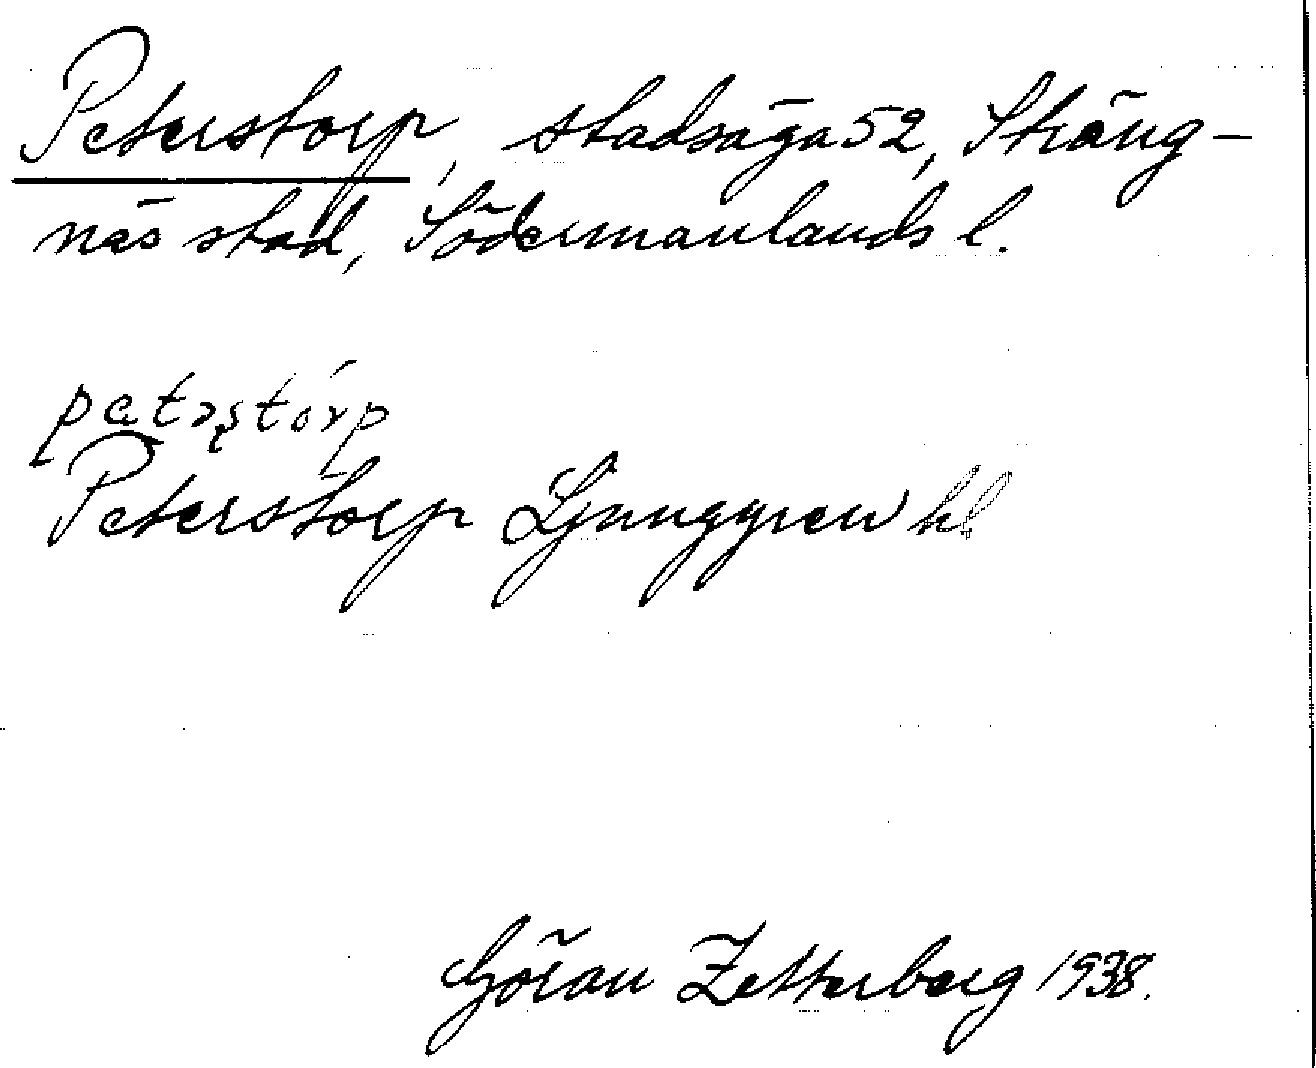 Peterstorp, stadsäga 52, Sträng-
näs stad, Södermanlands l.
petərstórp
Peterstorp Ljunggren hl
Göran Zetterberg 1938.